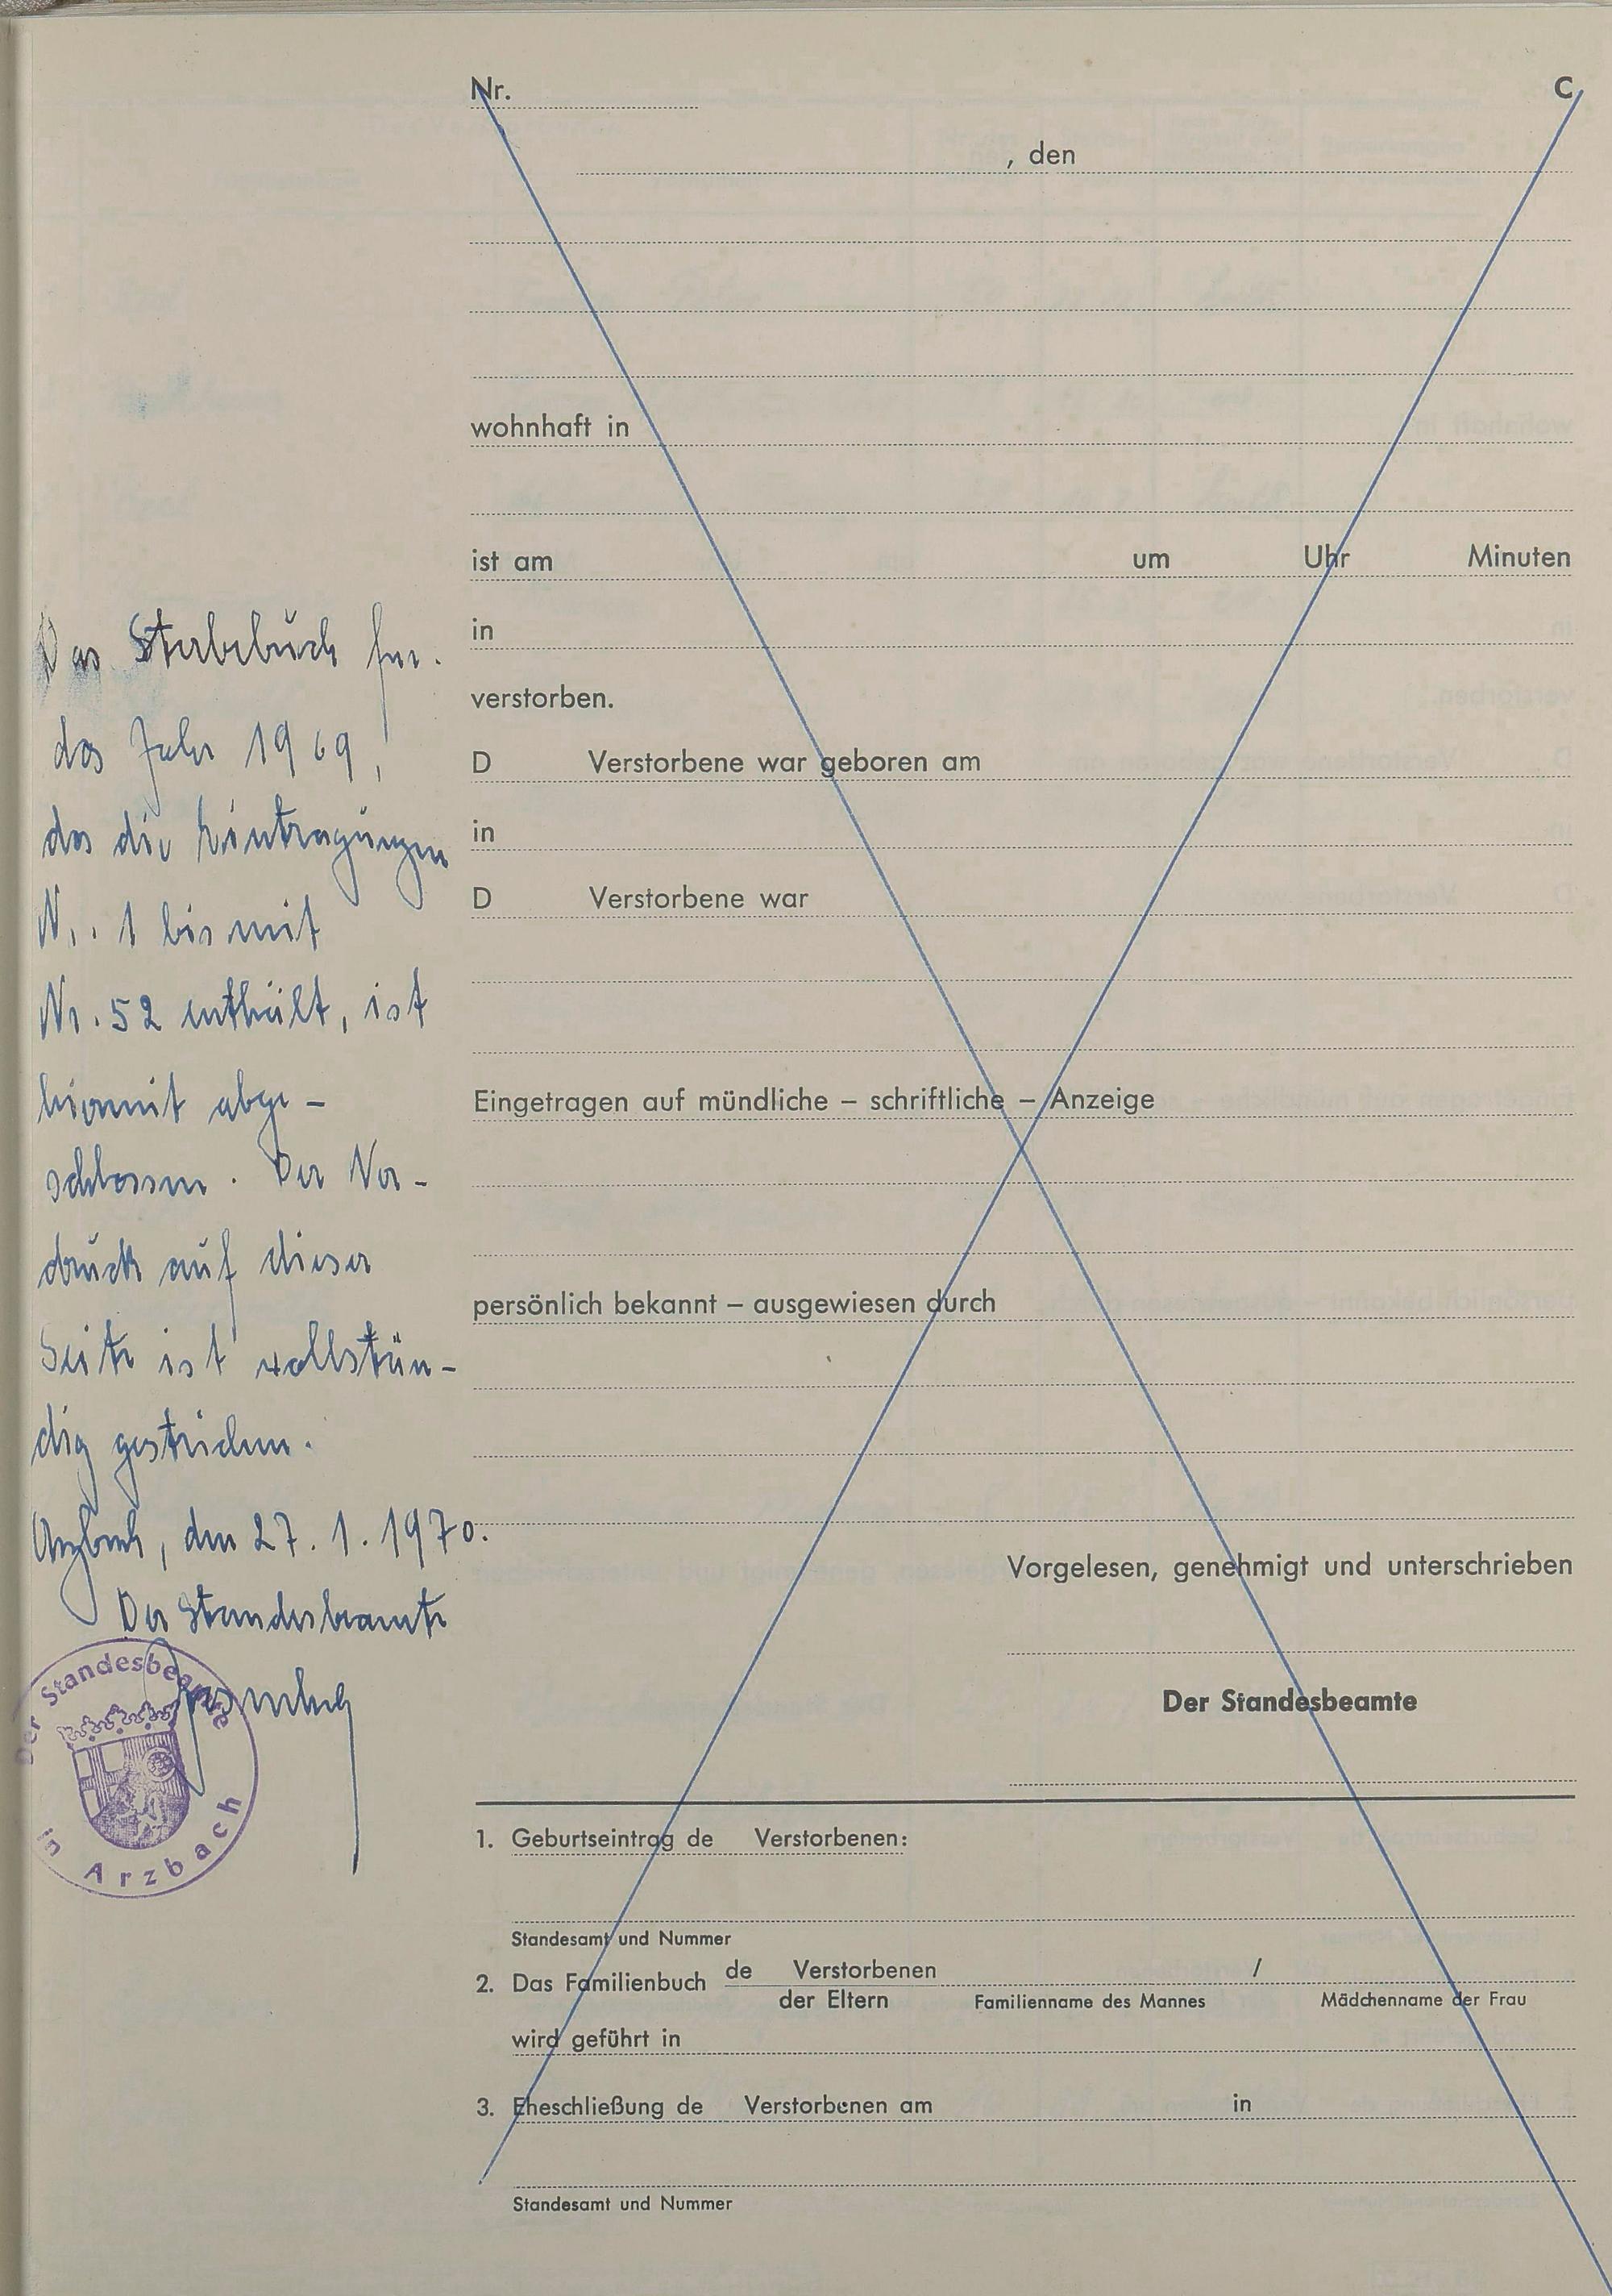 Nr.
C
, den
wohnhaft in
ist am um Uhr Minuten
in
verstorben.
D Verstorbene war geboren am
in
D Verstorbene war
Eingetragen auf mündliche – schriftliche – Anzeige
persönlich bekannt – ausgewiesen durch
Vorgelesen, genehmigt und unterschrieben
Der Standesbeamte
1. Geburtseintrag de Verstorbenen:
Standesamt und Nummer
2. Das Familienbuch de Verstorbenen /
der Eltern Familienname des Mannes Mädchenname der Frau
wird geführt in
3. Eheschließung de Verstorbenen am in
Standesamt und Nummer
Das Sterbebuch für
das Jahr 1969,
das die Eintragungen
Nr. 1 bis mit
Nr. 52 enthält, ist
hiermit abge-
schlossen. Der Vor-
druck auf dieser
Seite ist vollstän-
dig gestrichen.
Arzbach, den 27. 1. 1970.
Der Standesbeamte
Der Standesbeamte
in Arzbach